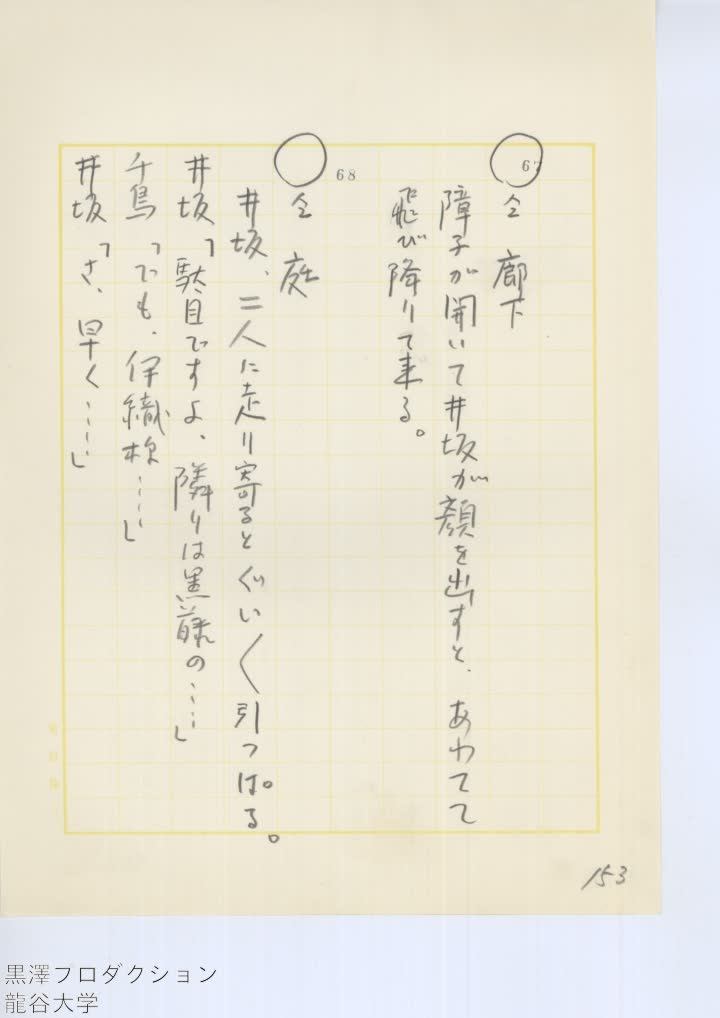 67
仝 廊下
障子が開いて井坂が顔を出すと、あわてて
飛び降りて来る。
68
仝 庭
井坂、二人に走り寄るとぐい〱引っぱる。
井坂「駄目ですよ、隣りは黒藤の……」
千鳥「でも、伊織様……」
井坂「さ、早く……」
153
黒澤プロダクション
龍谷大学